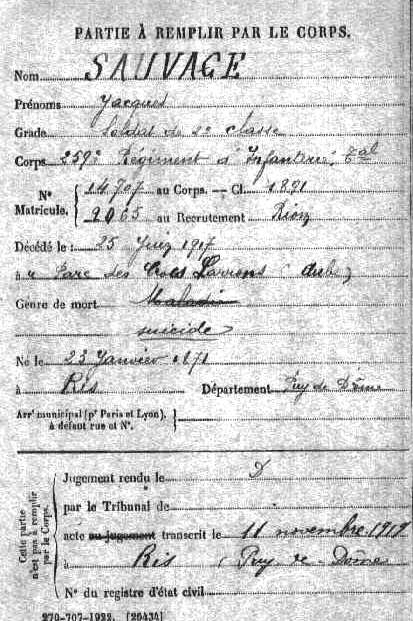 PARTIE À REMPLIR PAR LE CORPS.
Nom SAUVAGE
Prénoms Jacques
Grade Soldat de 2e classe
Corps 259e Régiment d'Infanterie, Tal
Nos Matricule. 14707 au Corps. — Cl. 1891
2065 au Recrutement Riom
Décédé le : 25 Juin 1917
à Parc des Trois (Aube)
Genre de mort Maladie
suicide
Né le 23 Janvier 1871
à Ris Département Puy de Dôme
Arrt municipal (pr Paris et Lyon), à défaut rue et N°.
Cette partie n'est pas à remplir par le Corps.
Jugement rendu le D
par le Tribunal de
acte ou jugement transcrit le 11 novembre 1919
à Ris (Puy-de-Dome
N° du registre d'état civil
270-707-1922. [26434]